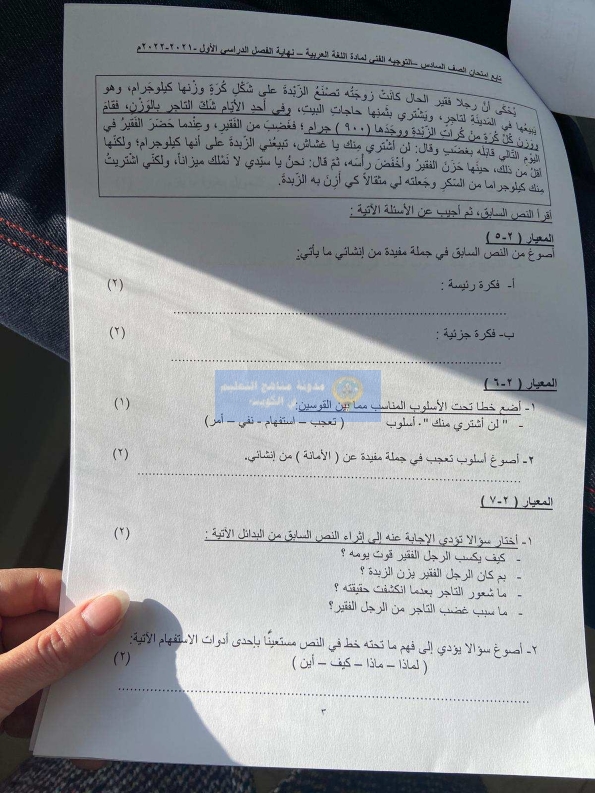 تابع امتحان الصف السادس – التوجيه الفني لمادة اللغة العربية – نهاية الفصل الدراسي الأول -٢٠٢١-٢٠٢٢م
يُحْكى أنَّ رجلا فقير الحال كانَتْ زوجتُه تصنَعُ الزّبْدةَ على شَكْلِ كُرةٍ وزْنها كيلوجَرام، وهو
يَبيعُها في المَدينةِ لِتاجرٍ، ويشْتري بثَمنِها حاجات البيتِ، وفي أحدِ الأيّامِ شَكّ التاجر بالوَزْنِ، فقامَ
ووزنَ كُلّ كُرَةٍ منْ كُراتِ الزّبدةِ ووجَدَها (٩٠٠) جرام ؛ فغضِبَ من الفَقيرِ، وعِنْدما حَضرَ الفَقيرُ في
اليَوْمِ التّالي قابله بغضب وقال: لن أشتري منك يا غشاش، تبيعُني الزبدةَ على أنها كيلوجرام؛ ولكنّها
أقلُّ من ذلك، حينها حَزنَ الفقيرُ وأخْفَضَ رأسَه، ثمّ قال: نحنُ يا سيّدي لا نَمْلك ميزاناً، ولكنّي اشتريتُ
منك كيلوجراما من السّكرِ وجَعلته لي مثقالاً كي أزِنَ به الزّبدةَ.
أقرأ النص السابق، ثم أجيب عن الأسئلة الآتية :
المعيار ( ٢-٥ )
أصوغ من النص السابق في جملة مفيدة من إنشائي ما يأتي:
أ- فكرة رئيسة : (٢)
ب- فكرة جزئية : (٢)
مدونة مناهج التعليم
في الكويت
المعيار ( ٢-٦ )
١- أضع خطا تحت الأسلوب المناسب مما بين القوسين: (١)
- " لن أشتري منك ". أسلوب ( تعجب – استفهام - نفي – أمر)
٢- أصوغ أسلوب تعجب في جملة مفيدة عن ( الأمانة ) من إنشائي. (٢)
المعيار ( ٢-٧ )
١- أختار سؤالا تؤدي الإجابة عنه إلى إثراء النص السابق من البدائل الآتية : (٢)
- كيف يكسب الرجل الفقير قوت يومه ؟
- بم كان الرجل الفقير يزن الزبدة ؟
- ما شعور التاجر بعدما انكشفت حقيقته ؟
- ما سبب غضب التاجر من الرجل الفقير؟
٢- أصوغ سؤالا يؤدي إلى فهم ما تحته خط في النص مستعينًا بإحدى أدوات الاستفهام الآتية:
( لماذا – ماذا – كيف – أين ) (٢)
٣